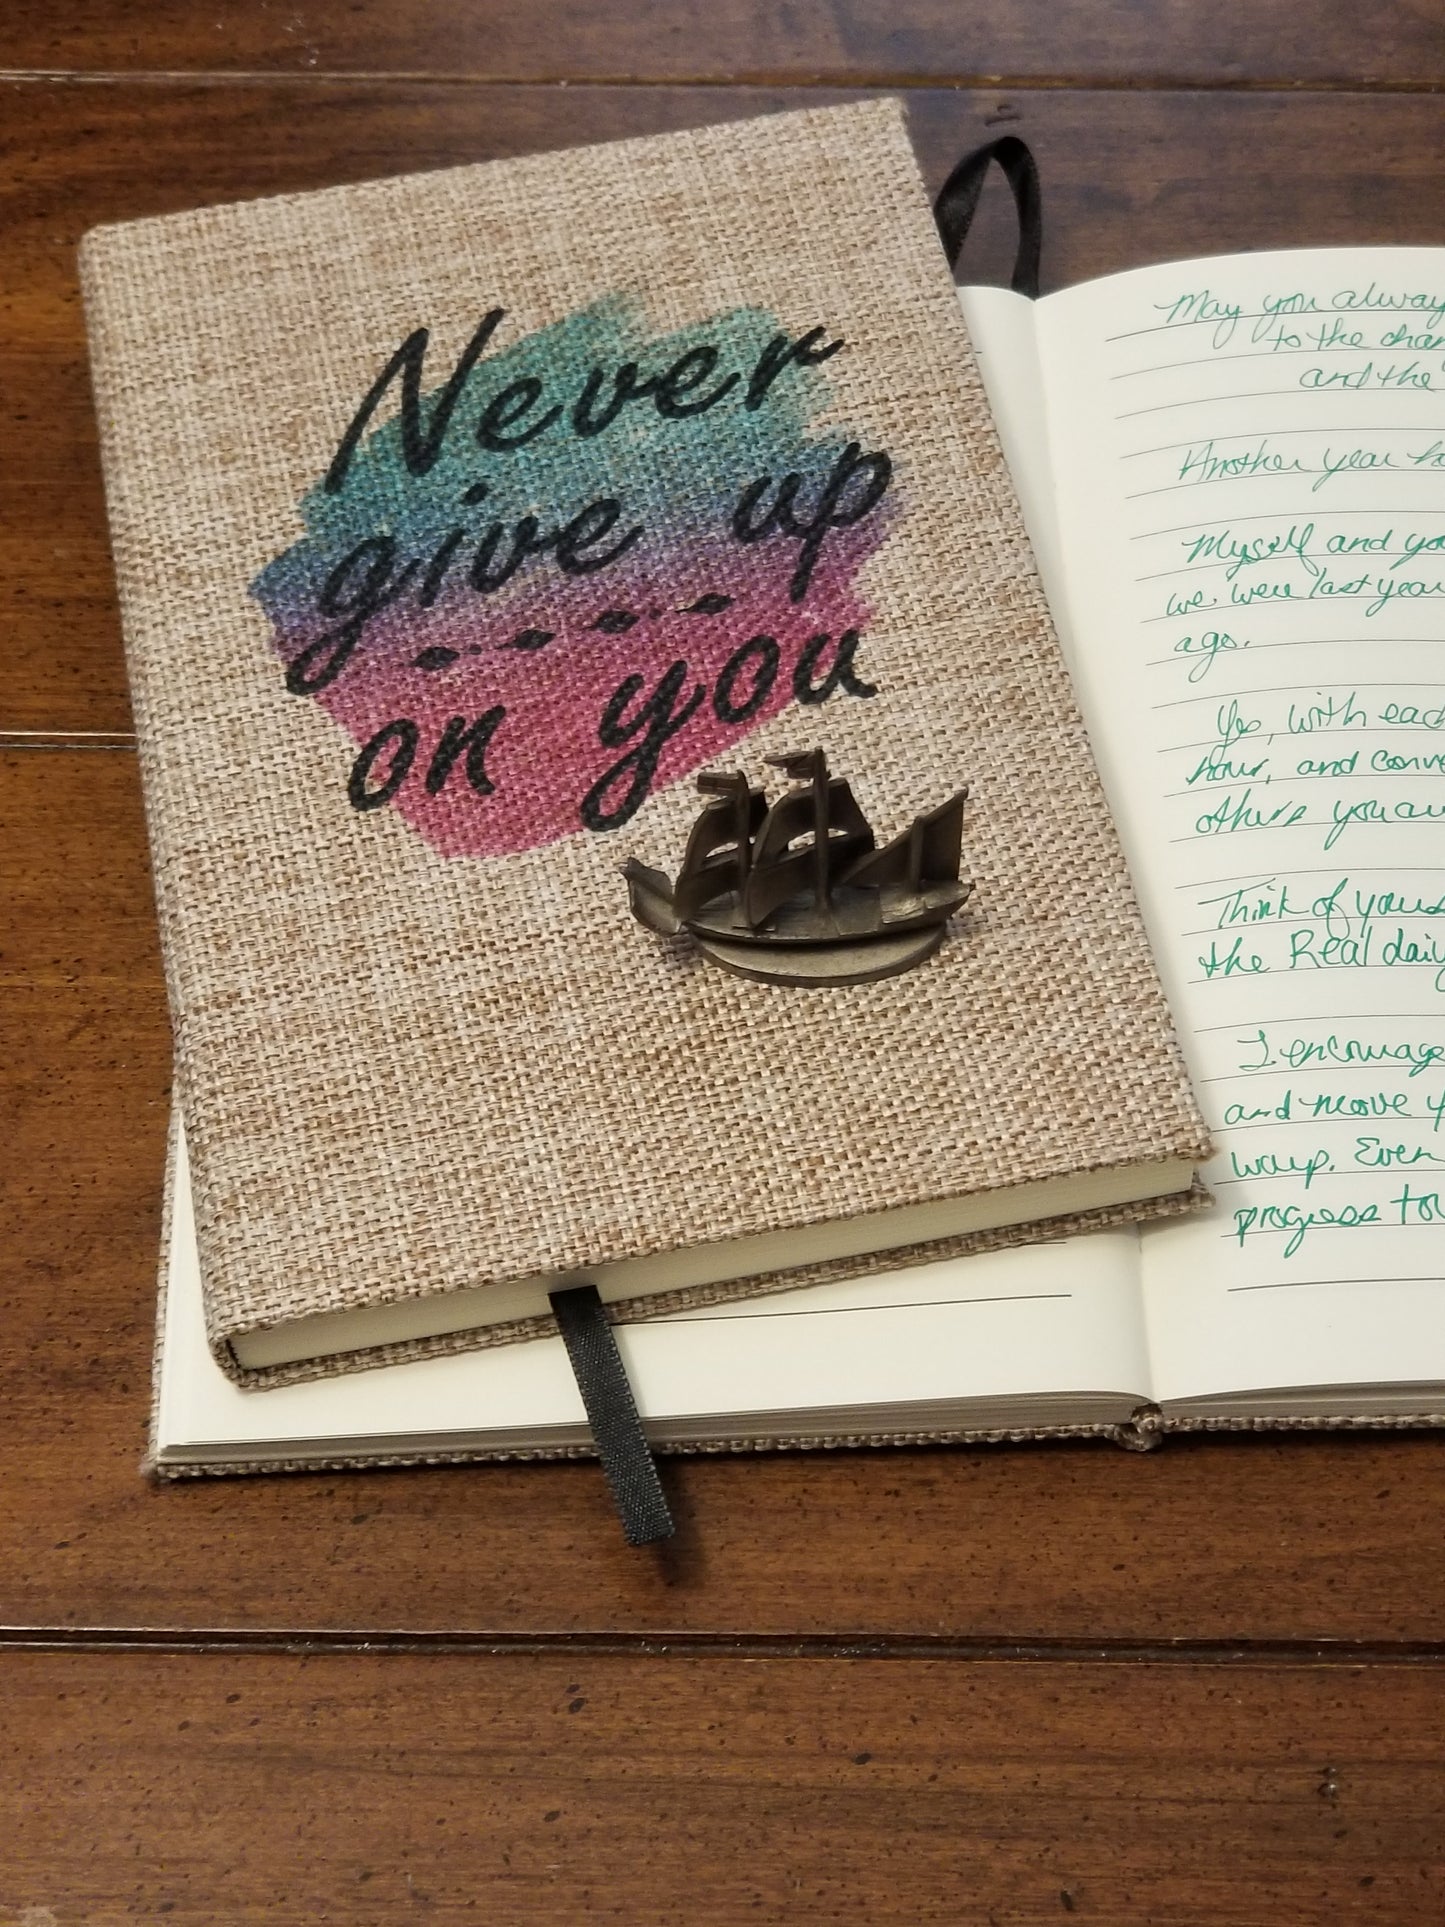 Never
give up
on you
May you alway
to the char
and the
Another year ha
Myself and yo
we were last year
ago.
Yes, with eac
hour, and conve
others you aw
Think of yours
the Real daily
I encourage
and move y
way. Even
progress tow